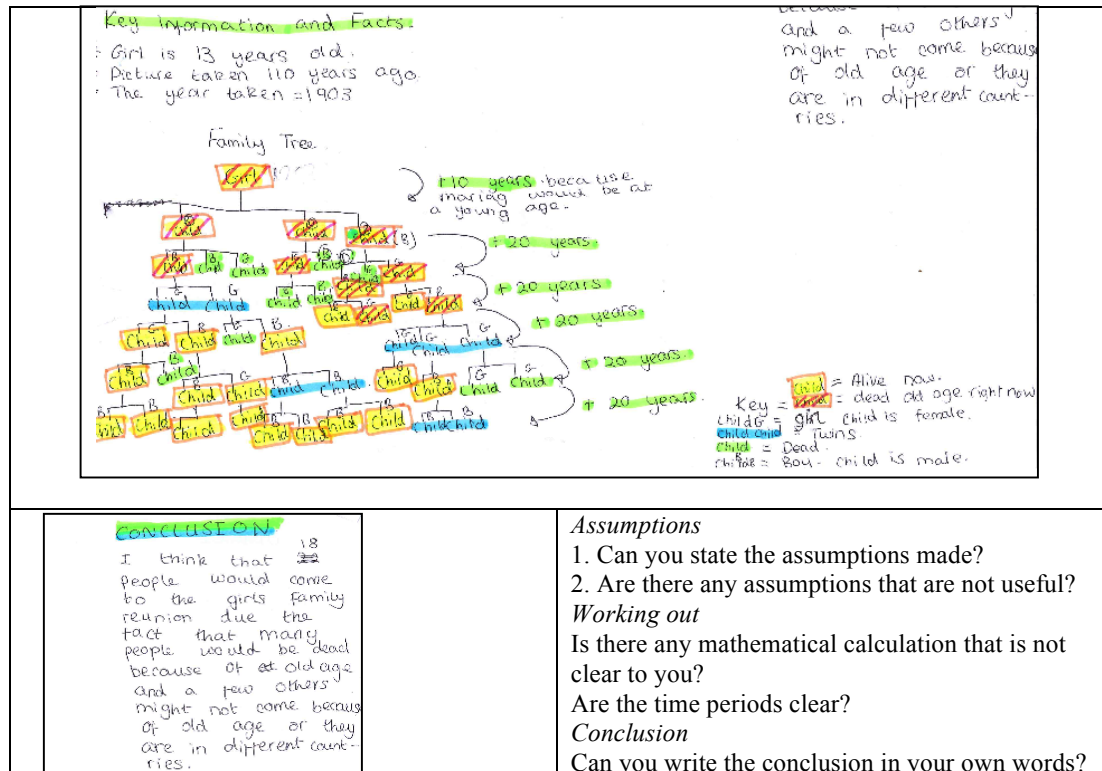 Key information and Facts.
: Girl is 13 years old.
: Picture taken 110 years ago.
: The year taken = 1903
and a few others
might not come because
of old age or they
are in different count-
ries.
Family Tree
Girl
+10 years because
mariag would be at
a young age.
Child
Child
Child (B)
+ 20 years.
B B G
Child Child Child
Child Child
Child
+ 20 years
G
Child Child
Child Child
Child Child
Child Child
+ 20 years.
G B G B
Child Child Child Child
G
Child Child Child
+ 20 years.
B B
Child Child
Child Child Child Child
Child Child
Child Child
+ 20 years.
Child Child Child Child
Child Child
Child Child
Child Child
Child = Alive now.
Key = Child = dead old age right now
Child G = girl child is female.
Child Child = Twins
Child = Dead.
Child B = Boy - child is male.
CONCLUSION
I think that 18
people would come
to the girls family
reunion due the
fact that many
people would be dead
because of old age
and a few others
might not come becaus
of old age or they
are in different count-
ries.
Assumptions
1. Can you state the assumptions made?
2. Are there any assumptions that are not useful?
Working out
Is there any mathematical calculation that is not
clear to you?
Are the time periods clear?
Conclusion
Can you write the conclusion in your own words?